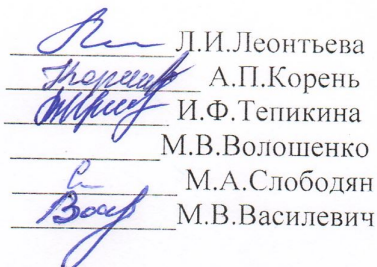 Л.И.Леонтьева
А.П.Корень
И.Ф.Тепикина
М.В.Волошенко
М.А.Слободян
М.В.Василевич